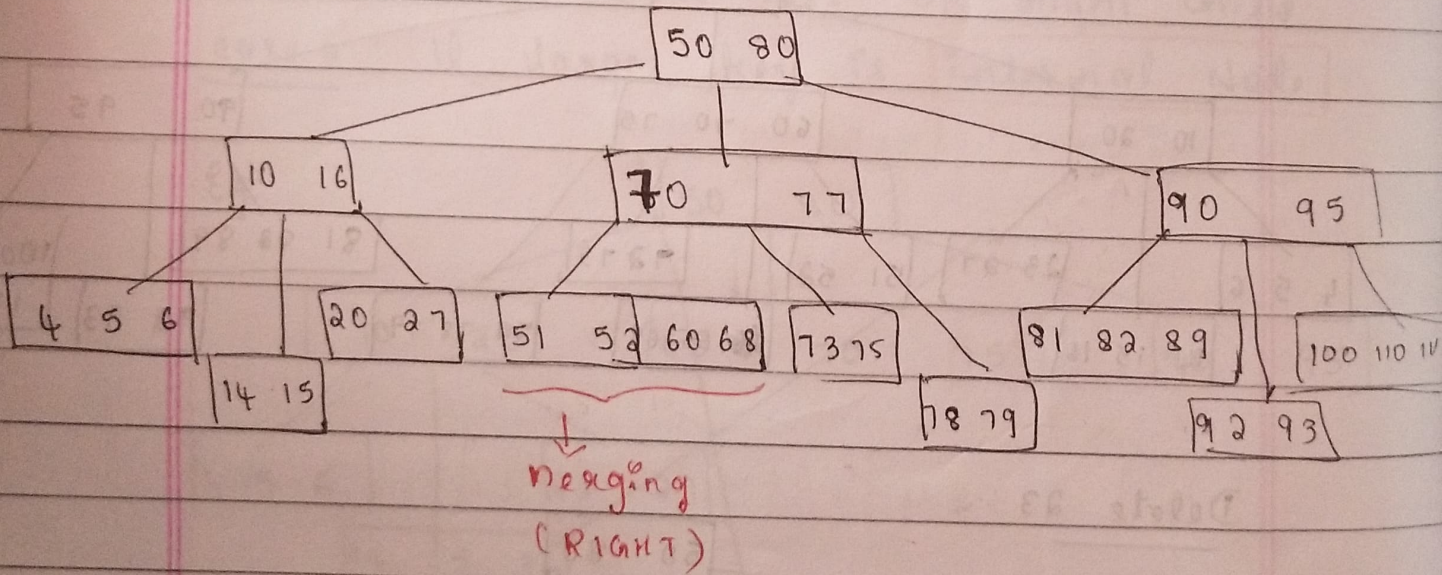 50 80
10 16
70 77
90 95
4 5 6
14 15
20 27
51 52 60 68
73 75
78 79
81 82 89
92 93
100 110
merging
(RIGHT)